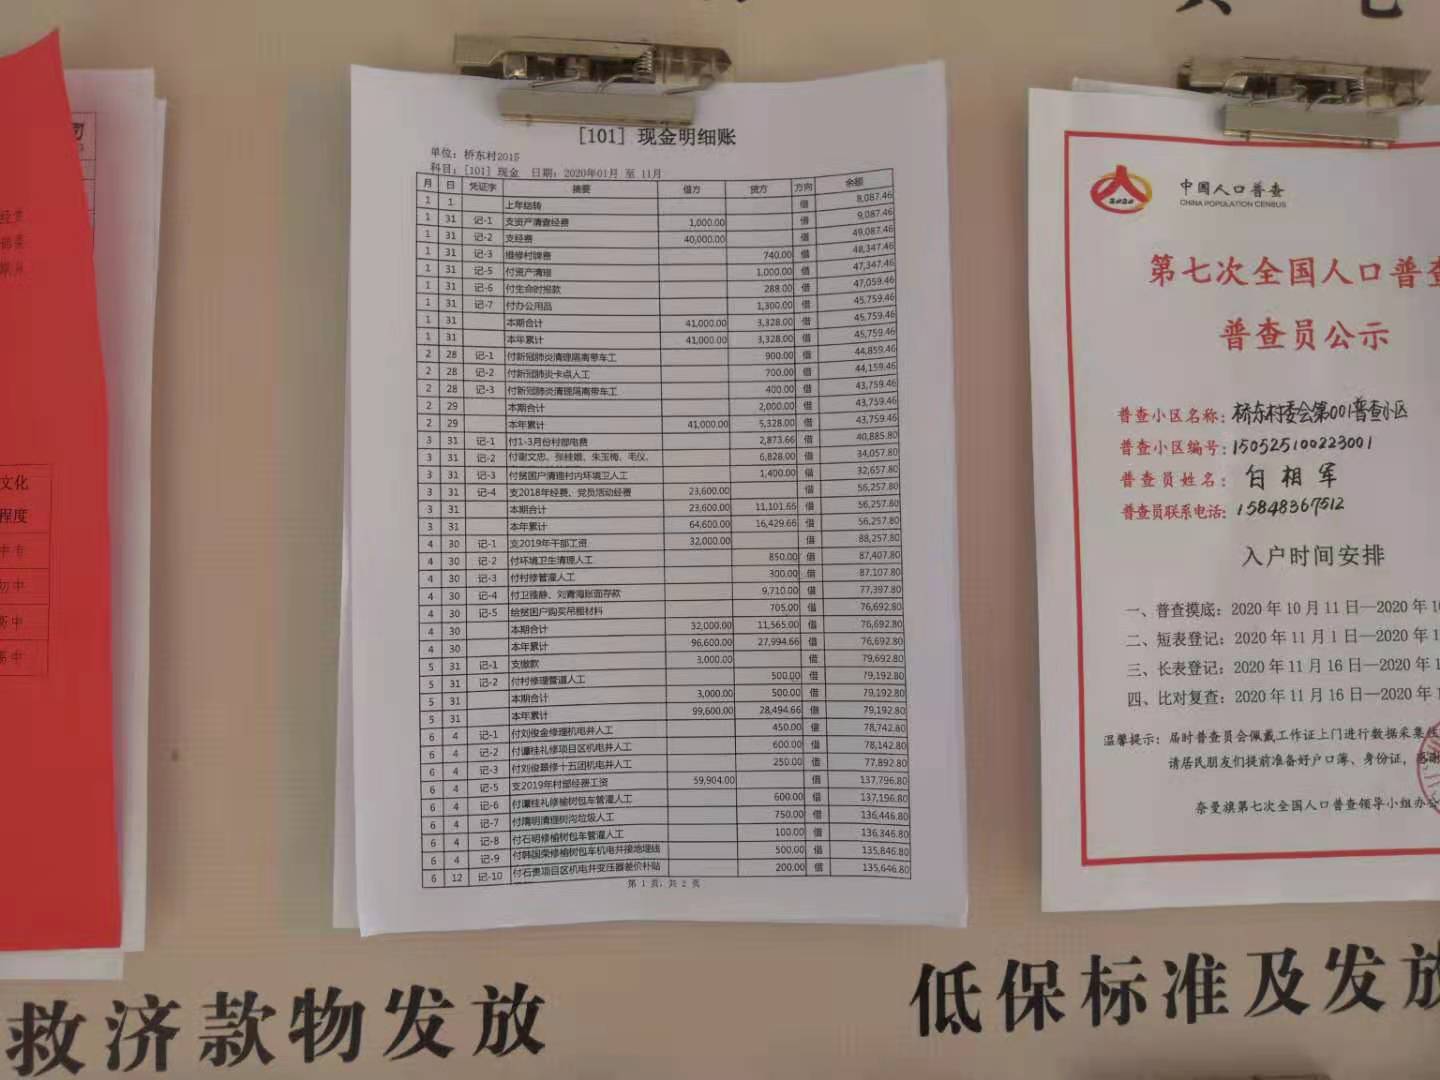 经费
文化
程度
中专
初中
高中
高中
[101] 现金明细账
单位：桥东村2015
科目：[101] 现金 日期：2020年01月 至 11月
月 日 凭证字 摘要 借方 贷方 方向 余额
1 1 上年结转 借 8,087.46
1 31 记-1 支资产清查经费 1,000.00 借 9,087.46
1 31 记-2 支经费 40,000.00 借 49,087.46
1 31 记-3 维修村牌费 740.00 借 48,347.46
1 31 记-5 付资产清理 1,000.00 借 47,347.46
1 31 记-6 付生命时报款 288.00 借 47,059.46
1 31 记-7 付办公用品 1,300.00 借 45,759.46
1 31 本期合计 41,000.00 3,328.00 借 45,759.46
1 31 本年累计 41,000.00 3,328.00 借 45,759.46
2 28 记-1 付新冠肺炎清理隔离带车工 900.00 借 44,859.46
2 28 记-2 付新冠肺炎卡点人工 700.00 借 44,159.46
2 28 记-3 付新冠肺炎清理隔离带车工 400.00 借 43,759.46
2 29 本期合计 2,000.00 借 43,759.46
2 29 本年累计 41,000.00 5,328.00 借 43,759.46
3 31 记-1 付1-3月份村部电费 2,873.66 借 40,885.80
3 31 记-2 付谢文忠、张桂娥、朱玉梅、毛仪、 6,828.00 借 34,057.80
3 31 记-3 付贫困户清理村内环境卫人工 1,400.00 借 32,657.80
3 31 记-4 支2018年经费、党员活动经费 23,600.00 借 56,257.80
3 31 本期合计 23,600.00 11,101.66 借 56,257.80
3 31 本年累计 64,600.00 16,429.66 借 56,257.80
4 30 记-1 支2019年干部工资 32,000.00 借 88,257.80
4 30 记-2 付环境卫生清理人工 850.00 借 87,407.80
4 30 记-3 付村修管灌人工 300.00 借 87,107.80
4 30 记-4 付卫雅静、刘青海账面存款 9,710.00 借 77,397.80
4 30 记-5 给贫困户购买吊棚材料 705.00 借 76,692.80
4 30 本期合计 32,000.00 11,565.00 借 76,692.80
4 30 本年累计 96,600.00 27,994.66 借 76,692.80
5 31 记-1 支缴款 3,000.00 借 79,692.80
5 31 记-2 付村修理管道人工 500.00 借 79,192.80
5 31 本期合计 3,000.00 500.00 借 79,192.80
5 31 本年累计 99,600.00 28,494.66 借 79,192.80
6 4 记-1 付刘俊金修理机电井人工 450.00 借 78,742.80
6 4 记-2 付谭桂礼修项目区机电井人工 600.00 借 78,142.80
6 4 记-3 付刘俊修十五团机电井人工 250.00 借 77,892.80
6 4 记-5 支2019年村部经费工资 59,904.00 借 137,796.80
6 4 记-6 付谭桂礼修榆树包车管灌人工 600.00 借 137,196.80
6 4 记-7 付隋明清理树沟垃圾人工 750.00 借 136,446.80
6 4 记-8 付石明修榆树包车管灌人工 100.00 借 136,346.80
6 4 记-9 付韩国荣修榆树包车机电井接地埋线 500.00 借 135,846.80
6 12 记-10 付石贵项目区机电井变压器差价补贴 200.00 借 135,646.80
第 1 页，共 2 页
2020
中国人口普查
CHINA POPULATION CENSUS
第七次全国人口普查
普查员公示
普查小区名称：桥东村委会第001普查小区
普查小区编号：150525100223001
普查员姓名：白相军
普查员联系电话：15848367512
入户时间安排
一、普查摸底：2020 年 10 月 11 日—2020 年 10
二、短表登记：2020 年 11 月 1 日—2020 年 1
三、长表登记：2020 年 11 月 16 日—2020 年 1
四、比对复查：2020 年 11 月 16 日—2020 年 1
温馨提示：届时普查员会佩戴工作证上门进行数据采集
请居民朋友们提前准备好户口簿、身份证，感谢
奈曼旗第七次全国人口普查领导小组办公
救济款物发放
低保标准及发放